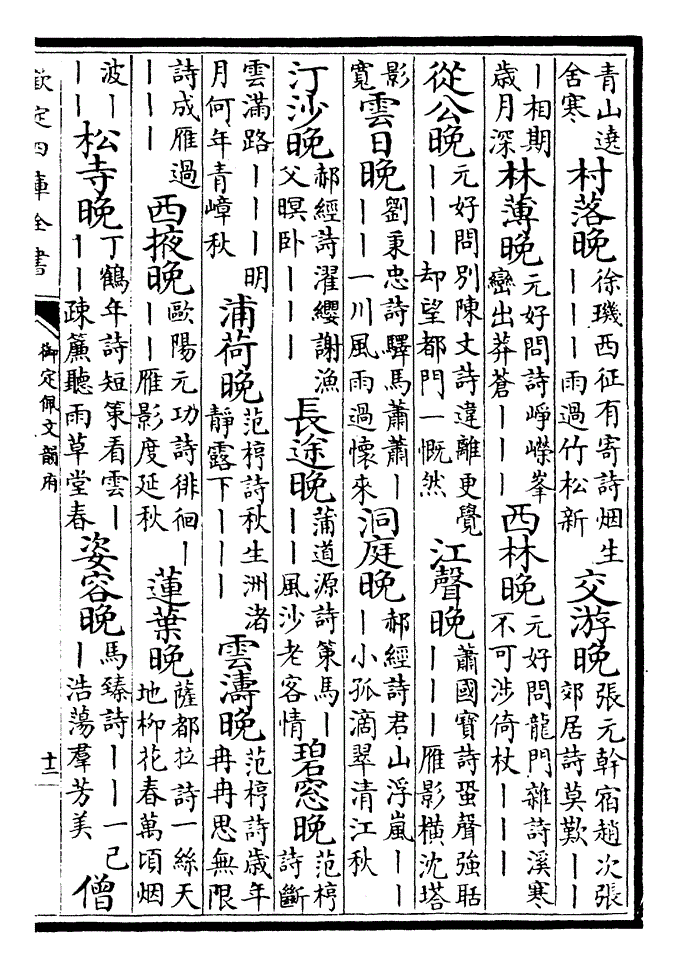 青山遶舍寒 村落晚 徐璣西征有寄詩烟生丨丨丨雨過竹松新 交游晚 張元幹宿趙次張郊居詩莫歎丨丨
丨相期歲月深 林薄晚 元好問詩崢嶸峯巒出莽蒼丨丨丨 西林晚 元好問龍門雜詩溪寒不可涉倚杖丨丨丨
從公晚 元好問別陳文詩違離更覺丨丨丨却望都門一慨然 江聲晚 蕭國寶詩蛩聲強聒丨丨丨雁影橫沈塔
影寬 雲日晚 劉秉忠詩驛馬蕭蕭丨丨丨一川風雨過懷來 洞庭晚 郝經詩君山浮嵐丨丨丨小孤滴翠清江秋
汀沙晚 郝經詩濯纓謝漁父暝卧丨丨丨 長途晚 蒲道源詩策馬丨丨丨風沙老客情 碧窓晚 范梈詩斷
雲滿路丨丨丨明月何年青嶂秋 浦荷晚 范梈詩秋生洲渚靜露下丨丨丨 雲濤晚 范梈詩歲年冉冉思無限
詩成雁過丨丨丨 西掖晚 歐陽元功詩徘徊丨丨丨雁影度延秋 蓮葉晚 薩都拉詩一絲天地柳花春萬頃烟
波丨丨丨 松寺晚 丁鶴年詩短策看雲丨丨丨疎簾聽雨草堂春 姿容晚 馬臻詩丨丨一己丨浩蕩羣芳美 僧
欽定四庫全書 御定佩文韻府 十二